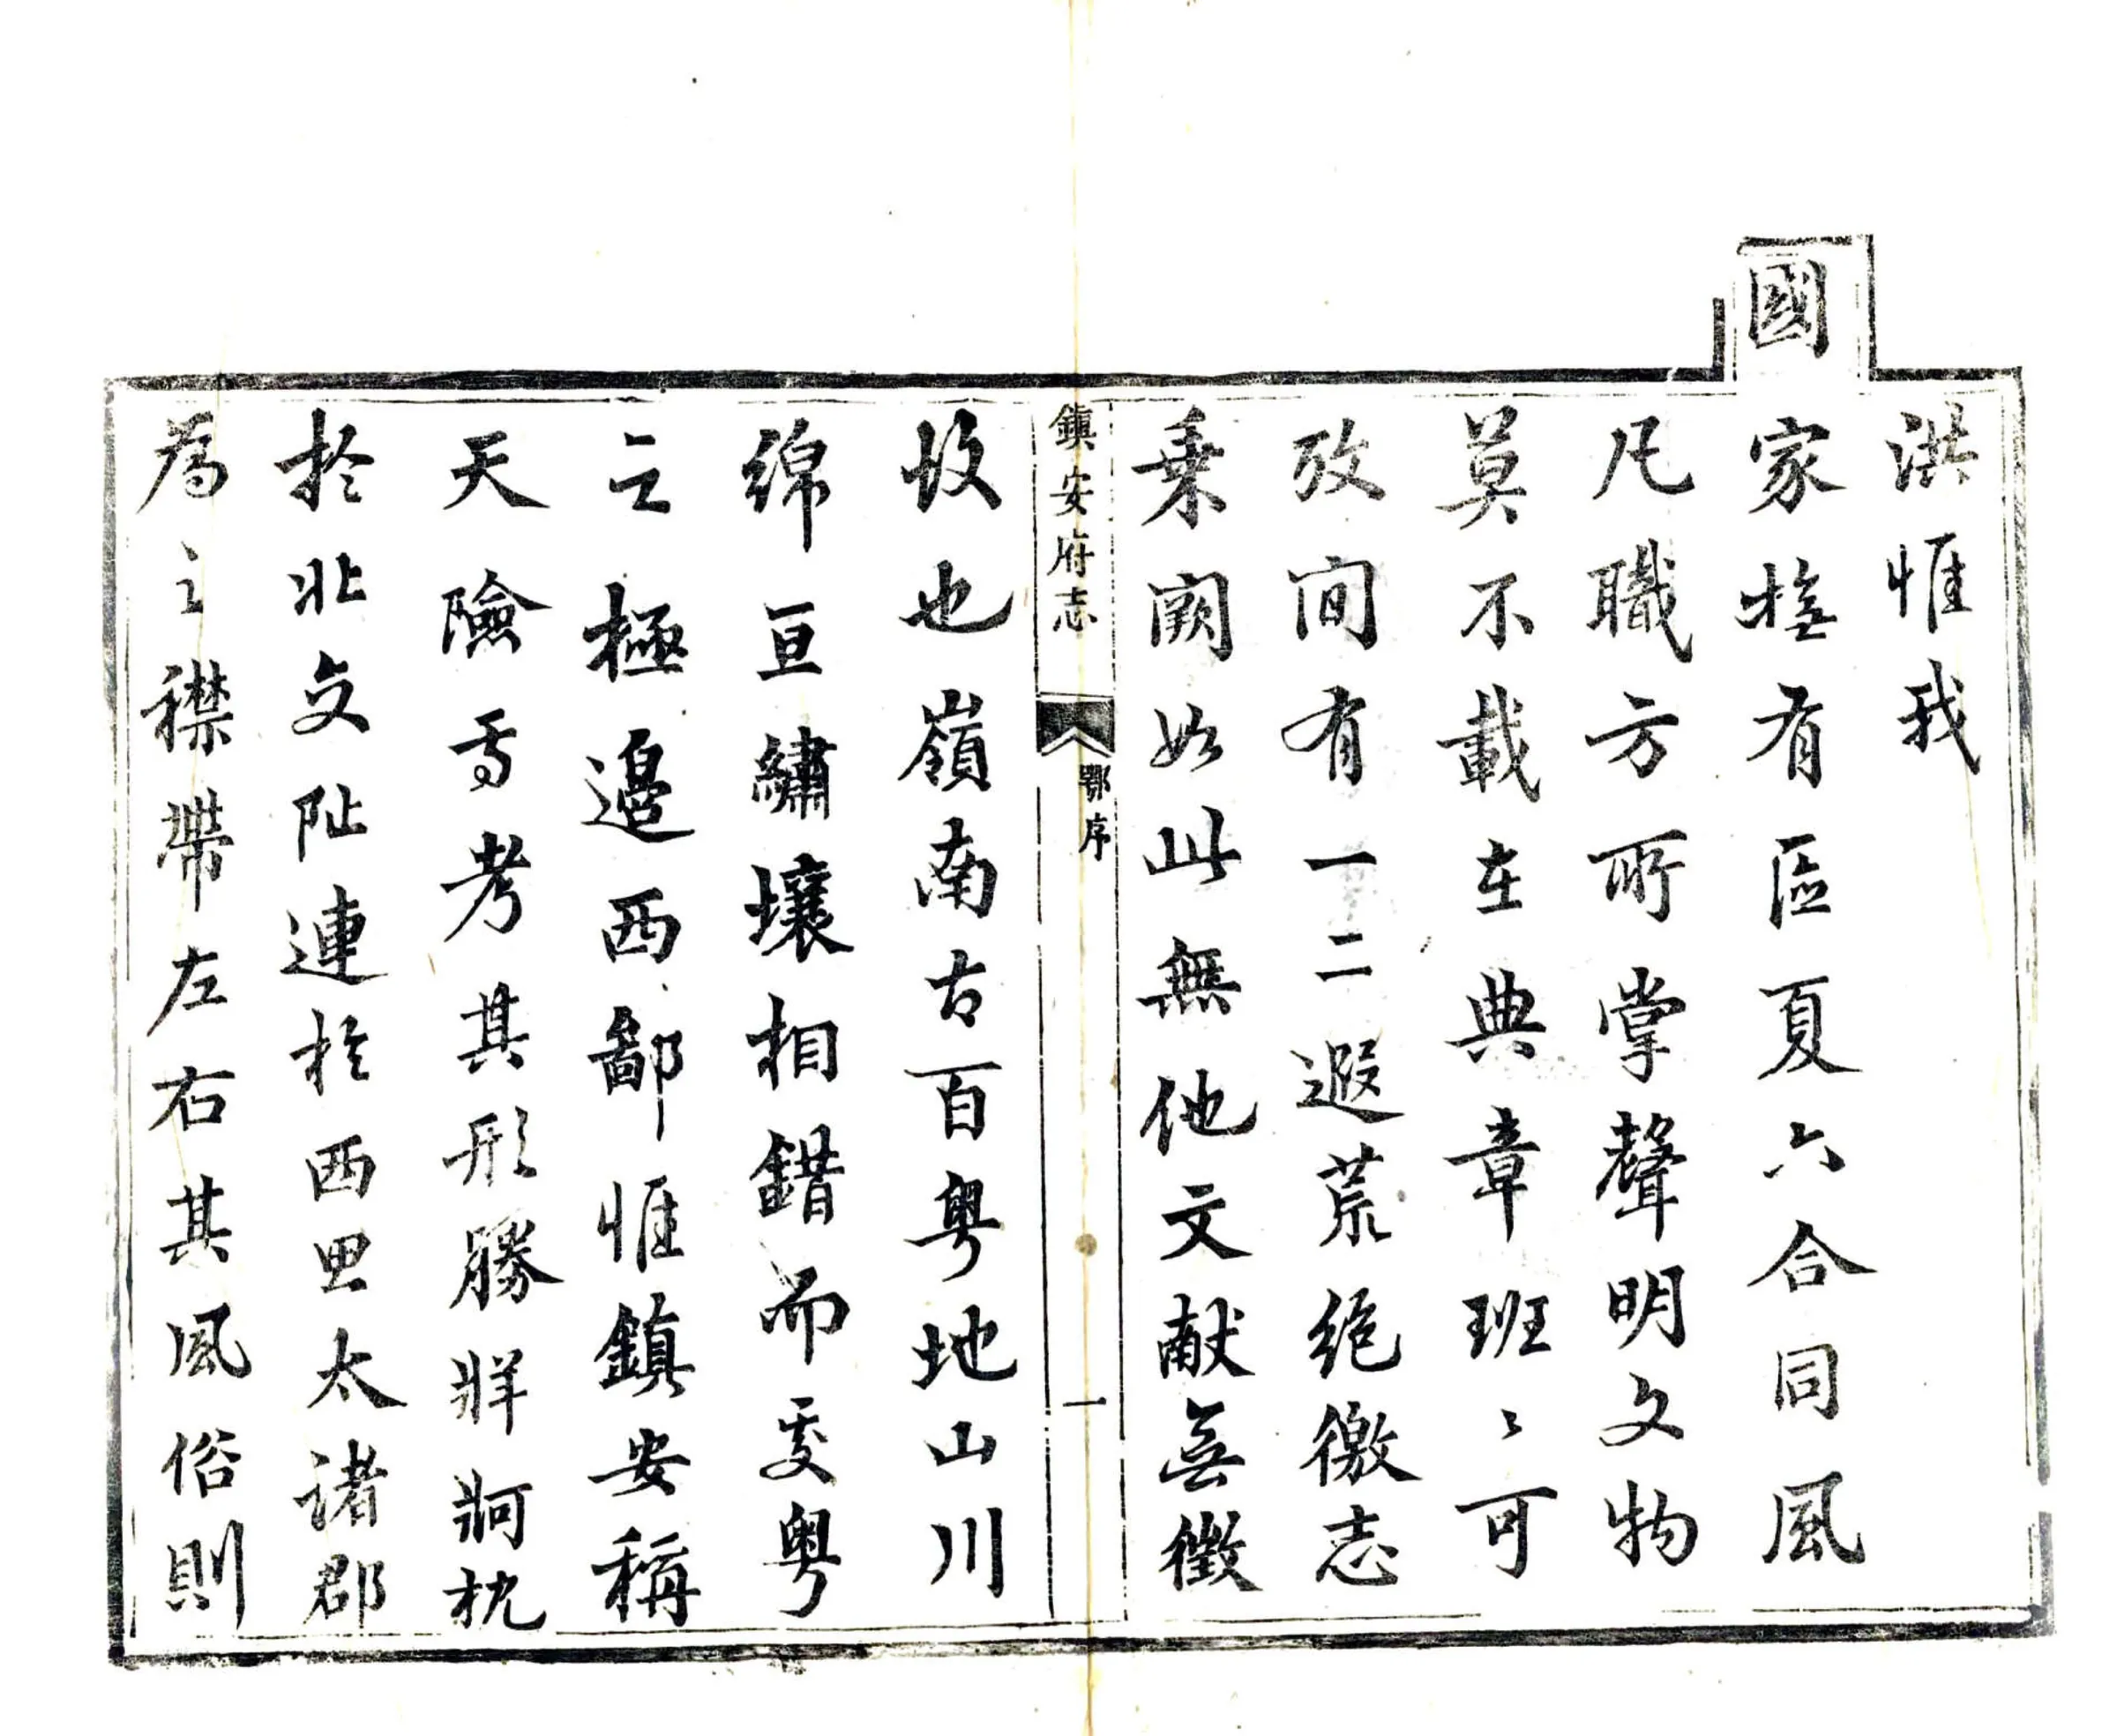 洪惟我
國家撫有區夏六合同風
凡職方所掌聲明文物
莫不載在典章班〻可
攷间有一二遐荒絶徼志
乗闕如此無他文献無徵
鎮安府志 鄂序 一
故也嶺南古百粤地山川
綿亘繡壤相錯而處粤
之極邊西鄙惟鎮安稱
天險焉考其形勝牂牁枕
於北交阯連於西思太諸郡
為之襟帶左右其風俗則